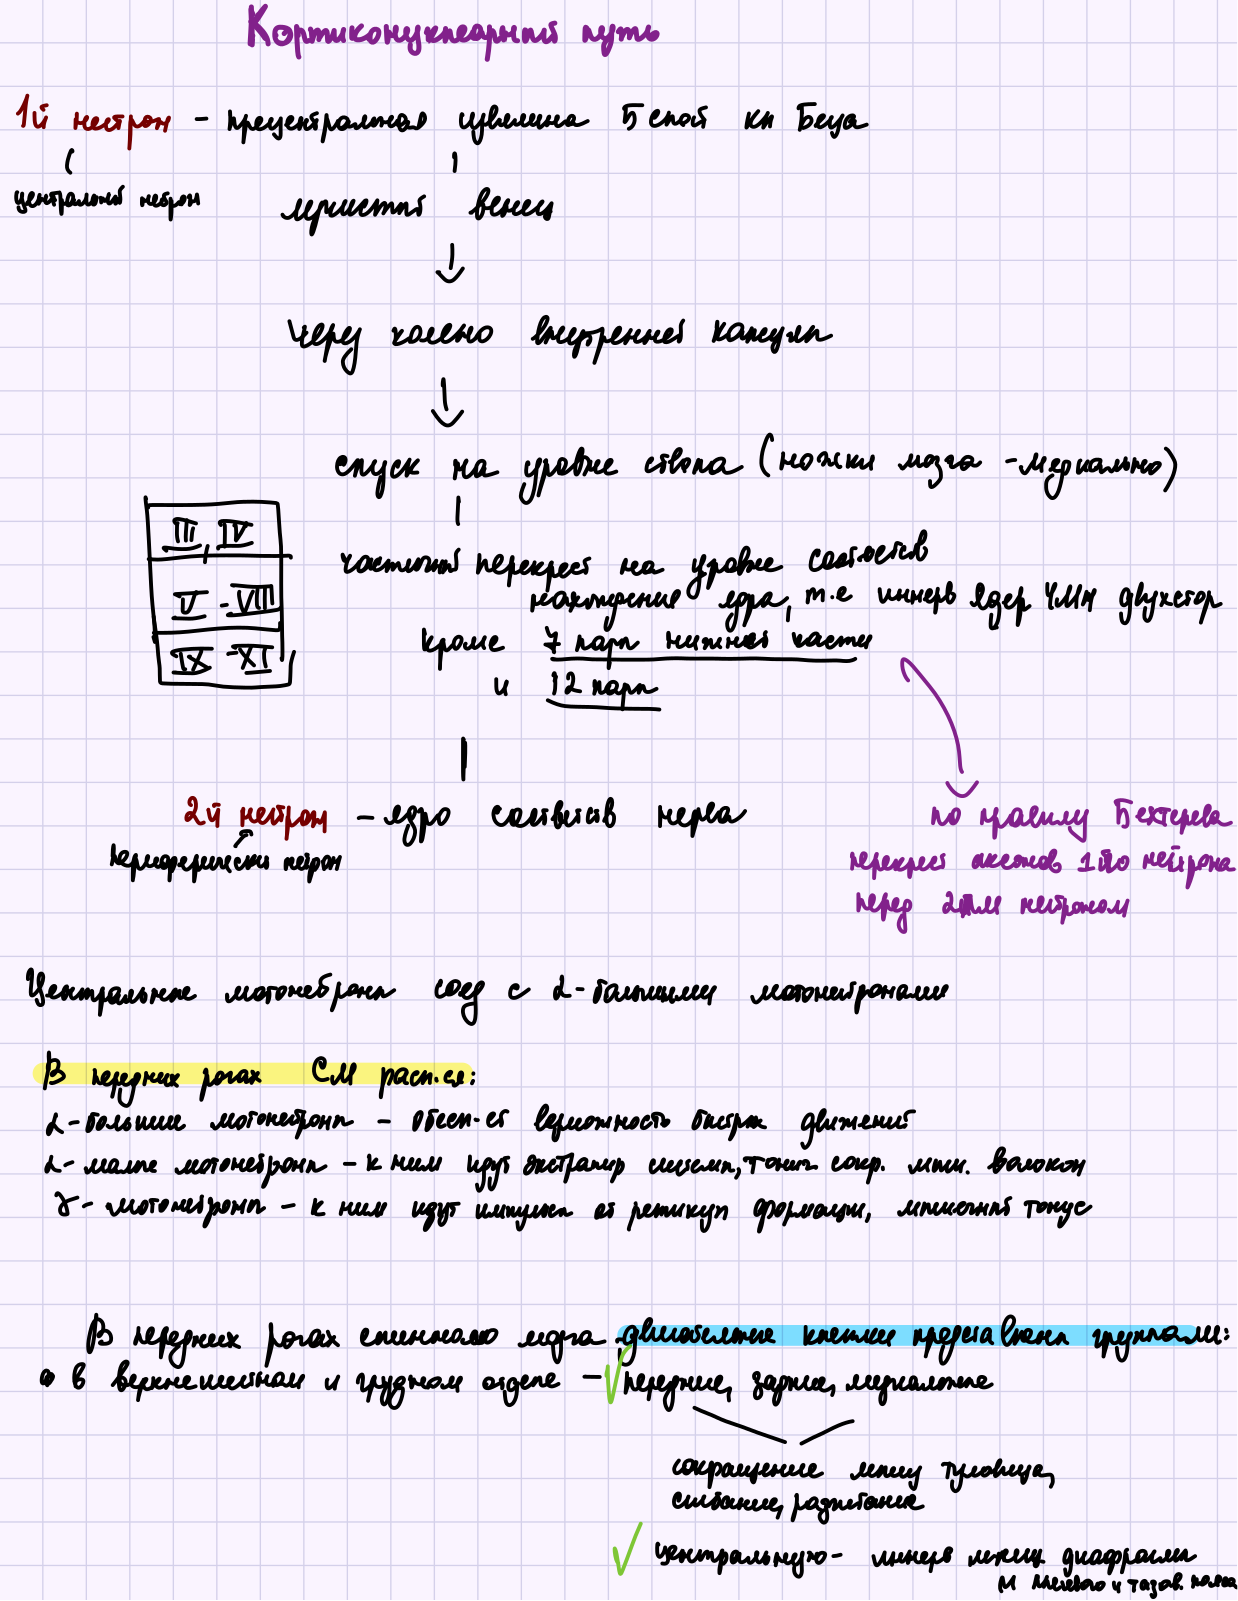 Кортиконуклеарный путь
1й нейрон - прецентральная извилина 5 слой кл Беца
центральный нейрон
лучистый венец
Через колено внутренней капсулы
спуск на уровне ствола (ножки мозга - медиально)
III, IV
V - VIII
IX - XI
частичный перекрест на уровне соответств
нахождения ядра, т.е иннерв ядер ЧМН двухстор
кроме 7 пары нижней части
и 12 пары
2й нейрон - ядро соответств нерва
периферический нейрон
по правилу Бехтерева
перекрест аксонов 1го нейрона
перед 2ым нейроном
Центральные мотонейроны соед с α-большими мотонейронами
В передних рогах СМ расп.ся:
α-большие мотонейроны - обесп-ет возможность быстрых движений
α-малые мотонейроны - к ним идут экстрапир системы, тонич. сокр. мыш. волокон
γ- мотонейроны - к ним идут импульсы от ретикул формации, мышечный тонус
В передних рогах спинного мозга двигательные клетки представлены группами:
в верхнешейном и грудном отделе - передние, задние, медиальные
сокращение мышц туловища,
сгибание, разгибание
центральную - иннерв мышц диафрагмы
м плечевого и тазов. пояса